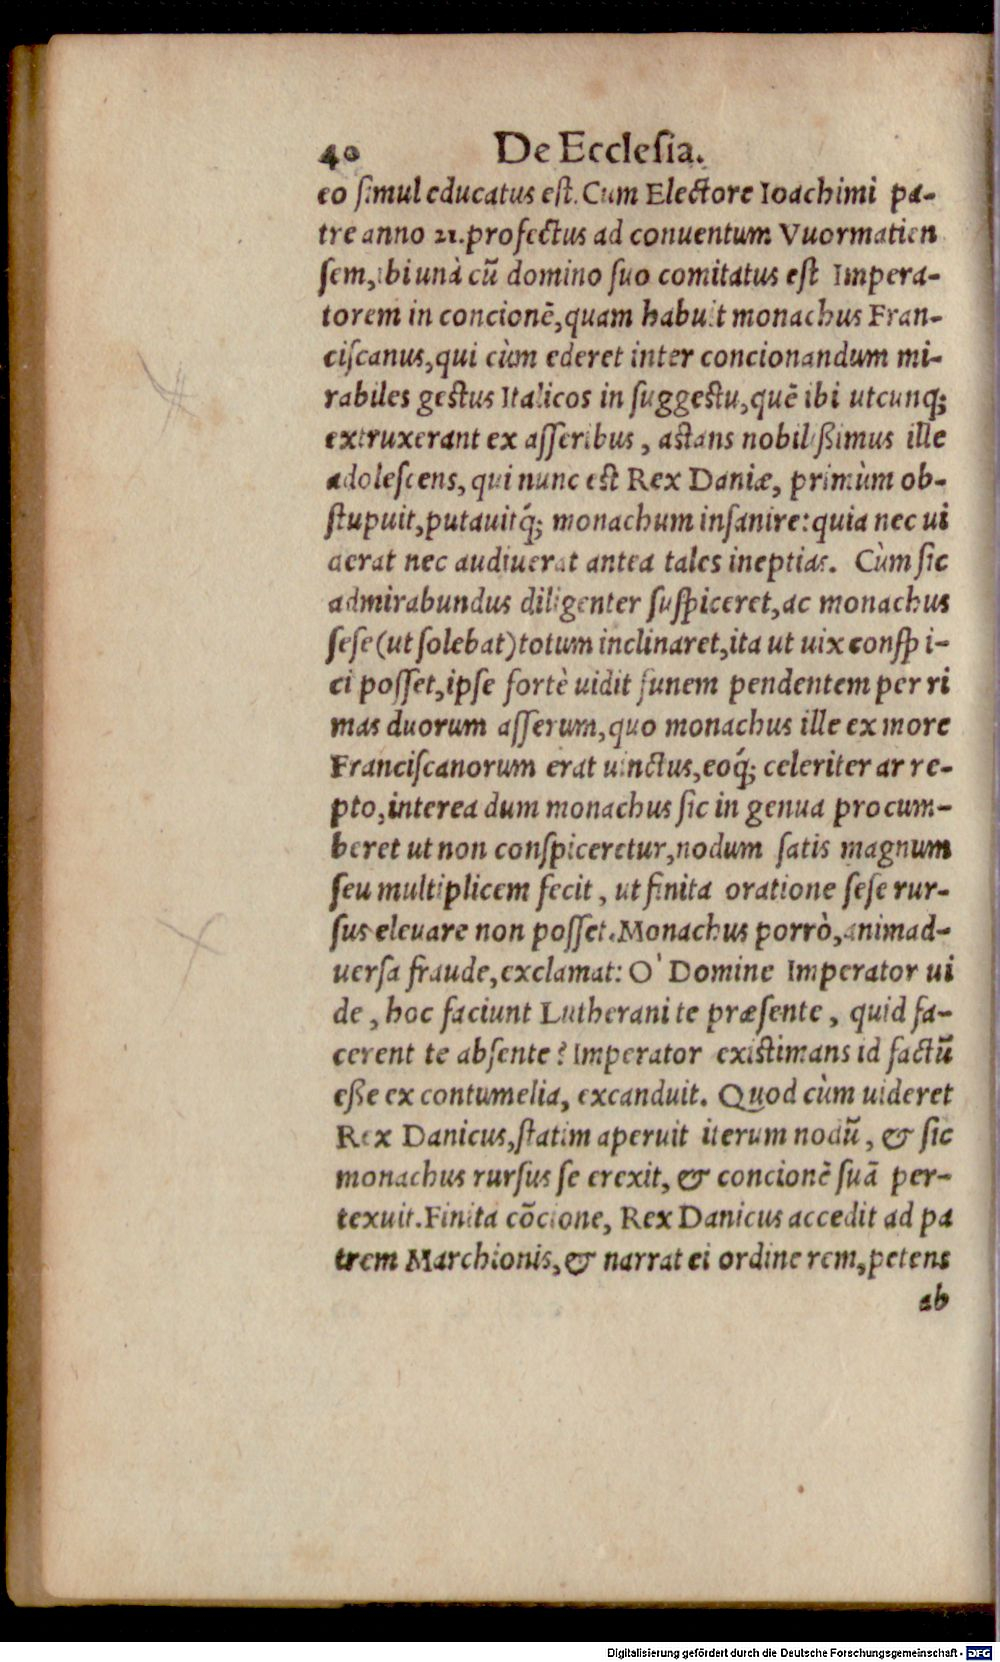 40 De Ecclesia.
eo ſimul educatus eſt. Cum Electore Ioachimi pa-
tre anno 21. profectus ad conuentum Vuormatien
ſem, ibi unà cũ domino ſuo comitatus eſt Impera-
torem in concionẽ, quam habuit monachus Fran-
ciſcanus, qui cùm ederet inter concionandum mi-
rabiles geſtus Italicos in ſuggeſtu, quẽ ibi utcunq;
extruxerant ex aſſeribus, aſtans nobilißimus ille
adoleſcens, qui nunc eſt Rex Daniæ, primùm ob-
ſtupuit, putauitq́; monachum inſanire: quia nec ui
derat nec audiuerat antea tales ineptias. Cùm ſic
admirabundus diligenter ſuſpiceret, ac monachus
ſeſe (ut ſolebat) totum inclinaret, ita ut uix conſpi-
ci poſſet, ipſe fortè uidit funem pendentem per ri
mas duorum aſſerum, quo monachus ille ex more
Franciſcanorum erat uinctus, eoq́; celeriter arre-
pto, interea dum monachus ſic in genua procum-
beret ut non conſpiceretur, nodum ſatis magnum
ſeu multiplicem fecit, ut finita oratione ſeſe rur-
ſus eleuare non poſſet. Monachus porrò, animad-
uerſa fraude, exclamat: O' Domine Imperator ui
de, hoc faciunt Lutherani te præſente, quid fa-
cerent te abſente? Imperator exiſtimans id factũ
eße ex contumelia, excanduit. Quod cùm uideret
Rex Danicus, ſtatim aperuit iterum nodũ, & ſic
monachus rurſus ſe erexit, & concionẽ ſuã per-
texuit. Finita cõcione, Rex Danicus accedit ad pa
trem Marchionis, & narrat ei ordine rem, petens
ab
Digitalisierung gefördert durch die Deutsche Forschungsgemeinschaft - DFG